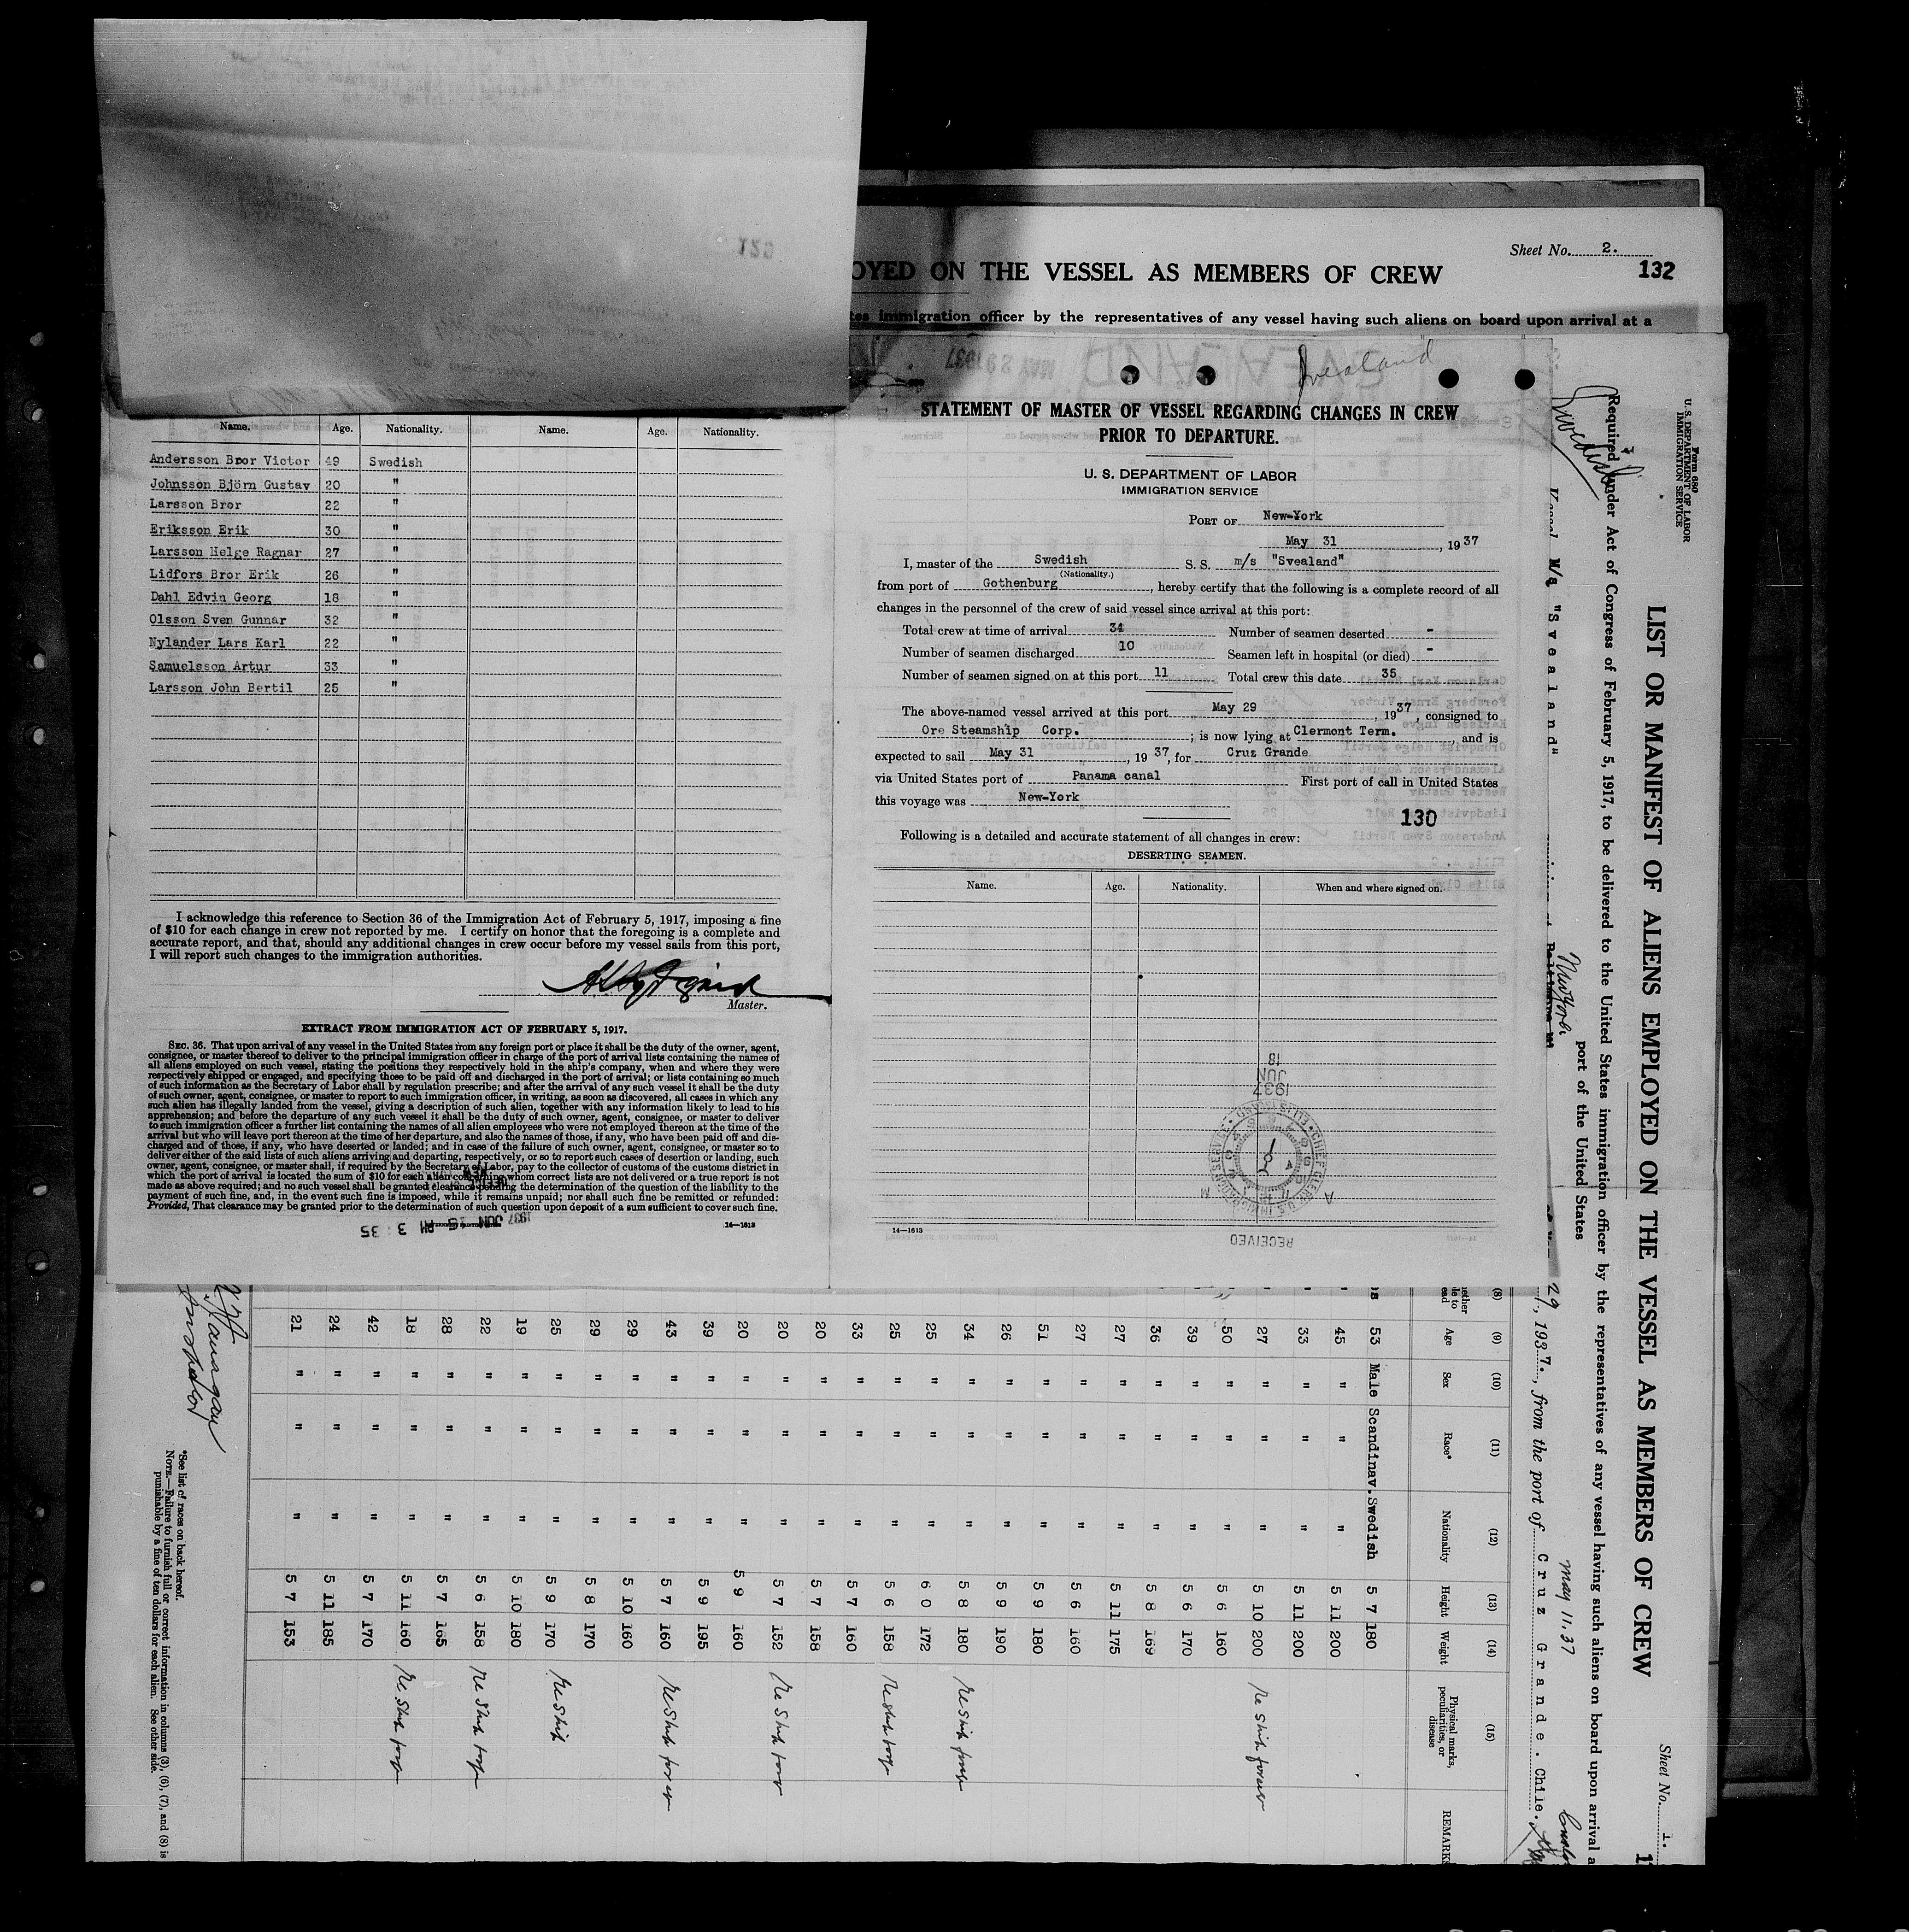 Sheet No. 2.
132
OYED ON THE VESSEL AS MEMBERS OF CREW
immigration officer by the representatives of any vessel having such aliens on board upon arrival at a
Name. Age. Nationality. Name. Age. Nationality.
Andersson Bror Victor 49 Swedish
Johnsson Björn Gustav 20 "
Larsson Bror 22 "
Eriksson Erik 30 "
Larsson Helge Ragnar 27 "
Lidfors Bror Erik 26 "
Dahl Edvin Georg 18 "
Olsson Sven Gunnar 32 "
Nylander Lars Karl 22 "
Samuelsson Artur 33 "
Larsson John Bertil 25 "
I acknowledge this reference to Section 36 of the Immigration Act of February 5, 1917, imposing a fine
of $10 for each change in crew not reported by me. I certify on honor that the foregoing is a complete and
accurate report, and that, should any additional changes in crew occur before my vessel sails from this port,
I will report such changes to the immigration authorities.
Master.
EXTRACT FROM IMMIGRATION ACT OF FEBRUARY 5, 1917.
SEC. 36. That upon arrival of any vessel in the United States from any foreign port or place it shall be the duty of the owner, agent,
consignee, or master thereof to deliver to the principal immigration officer in charge of the port of arrival lists containing the names of
all aliens employed on such vessel, stating the positions they respectively hold in the ship's company, when and where they were
respectively shipped or engaged, and specifying those to be paid off and discharged in the port of arrival; or lists containing so much
of such information as the Secretary of Labor shall by regulation prescribe; and after the arrival of any such vessel it shall be the duty
of such owner, agent, consignee, or master to report to such immigration officer, in writing, as soon as discovered, all cases in which any
such alien has illegally landed from the vessel, giving a description of such alien, together with any information likely to lead to his
apprehension; and before the departure of any such vessel it shall be the duty of such owner, agent, consignee, or master to deliver
to such immigration officer a further list containing the names of all alien employees who were not employed thereon at the time of the
arrival but who will leave port thereon at the time of her departure, and also the names of those, if any, who have been paid off and dis-
charged and of those, if any, who have deserted or landed; and in case of the failure of such owner, agent, consignee, or master so to
deliver either of the said lists of such aliens arriving and departing, respectively, or so to report such cases of desertion or landing, such
owner, agent, consignee, or master shall, if required by the Secretary of Labor, pay to the collector of customs of the customs district in
which the port of arrival is located the sum of $10 for each alien concerning whom correct lists are not delivered or a true report is not
made as above required; and no such vessel shall be granted clearance pending the determination of the question of the liability to the
payment of such fine, and, in the event such fine is imposed, while it remains unpaid; nor shall such fine be remitted or refunded:
Provided, That clearance may be granted prior to the determination of such question upon deposit of a sum sufficient to cover such fine.
1937 JUN 15 PM 3:35
14—1613
Svealand
STATEMENT OF MASTER OF VESSEL REGARDING CHANGES IN CREW
PRIOR TO DEPARTURE.
U. S. DEPARTMENT OF LABOR
IMMIGRATION SERVICE
PORT OF New-York
May 31, 1937
I, master of the Swedish S. S. m/s "Svealand"
(Nationality.)
from port of Gothenburg, hereby certify that the following is a complete record of all
changes in the personnel of the crew of said vessel since arrival at this port:
Total crew at time of arrival 34 Number of seamen deserted -
Number of seamen discharged 10 Seamen left in hospital (or died) -
Number of seamen signed on at this port 11 Total crew this date 35
The above-named vessel arrived at this port May 29, 1937, consigned to
Ore Steamship Corp.; is now lying at Clermont Term., and is
expected to sail May 31, 1937, for Cruz Grande
via United States port of Panama canal First port of call in United States
this voyage was New-York
130
Following is a detailed and accurate statement of all changes in crew:
DESERTING SEAMEN.
Name. Age. Nationality. When and where signed on.
1937
JUN
18
RECEIVED
14—1613
Form 680
U. S. DEPARTMENT OF LABOR
IMMIGRATION SERVICE
Sheet No. 1.
LIST OR MANIFEST OF ALIENS EMPLOYED ON THE VESSEL AS MEMBERS OF CREW
Required under Act of Congress of February 5, 1917, to be delivered to the United States immigration officer by the representatives of any vessel having such aliens on board upon arrival a
Swedish
port of the United States
Vessel M/s "Svealand"
New York
29, 1937., from the port of Cruz Grande. Chile.
May 11.37
(8) (9) (10) (11) (12) (13) (14) (15)
Age Sex Race* Nationality Height Weight Physical marks, peculiarities, or disease REMARKS
53 Male Scandinav. Swedish 5 7 180
45 " " " 5 11 200
33 " " " 5 11 200
27 " " " 5 10 200
50 " " " 5 6 160
39 " " " 5 6 170
36 " " " 5 8 169
27 " " " 5 11 175
27 " " " 5 6 160
51 " " " 5 9 180
26 " " " 5 9 190
34 " " " 5 8 180
25 " " " 6 0 172
25 " " " 5 6 158
33 " " " 5 7 160
20 " " " 5 7 158
20 " " " 5 7 152
20 " " " 5 9 160
39 " " " 5 9 195
43 " " " 5 7 160
29 " " " 5 10 160
29 " " " 5 8 170
25 " " " 5 9 170
19 " " " 5 10 180
22 " " " 5 6 158
28 " " " 5 7 165
18 " " " 5 11 160
42 " " " 5 7 170
24 " " " 5 11 185
21 " " " 5 7 153
Inspector
*See list of races on back hereof.
NOTE.—Failure to furnish full or correct information in columns (3), (6), (7), and (8) is
punishable by a fine of ten dollars for each alien. See other side.